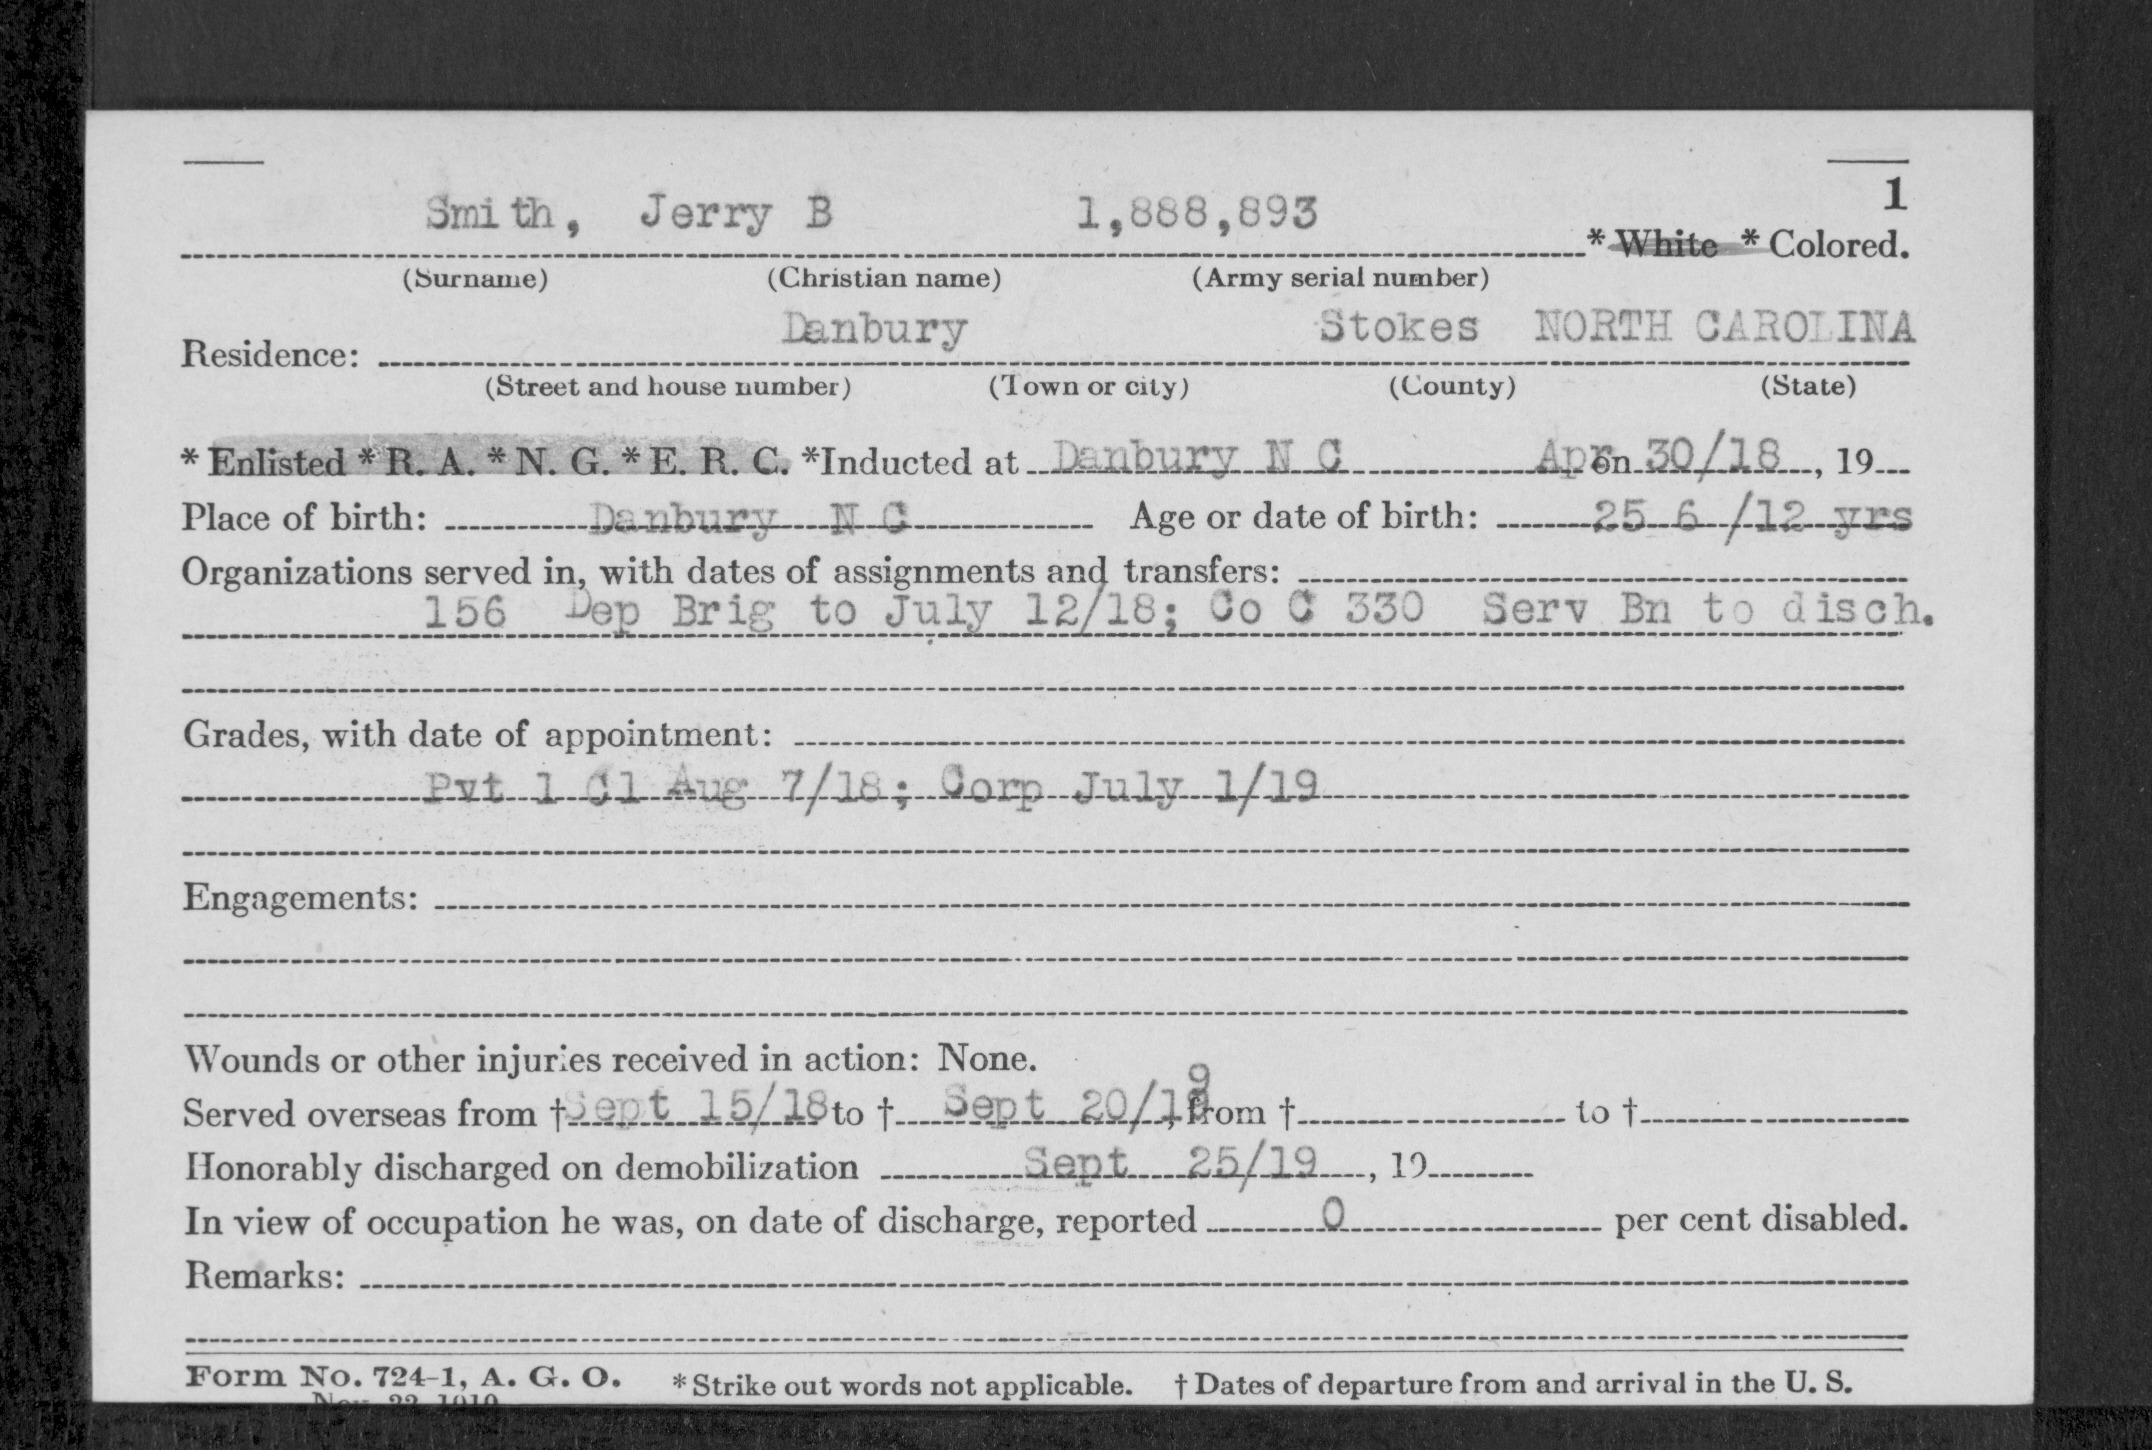 1
Smith, Jerry B 1,888,893 * White * Colored.
(Surname) (Christian name) (Army serial number)
Danbury Stokes NORTH CAROLINA
Residence:
(Street and house number) (Town or city) (County) (State)
* Enlisted * R. A. * N. G. * E. R. C. *Inducted at Danbury N C Apr on 30/18, 19
Place of birth: Danbury N C Age or date of birth: 25 6/12 yrs
Organizations served in, with dates of assignments and transfers:
156 Dep Brig to July 12/18; Co C 330 Serv Bn to disch.
Grades, with date of appointment:
Pvt 1 Cl Aug 7/18; Corp July 1/19
Engagements:
Wounds or other injuries received in action: None.
Served overseas from † Sept 15/18 to † Sept 20/19, from † to †
Honorably discharged on demobilization Sept 25/19, 19
In view of occupation he was, on date of discharge, reported 0 per cent disabled.
Remarks:
Form No. 724-1, A. G. O. * Strike out words not applicable. † Dates of departure from and arrival in the U. S.
Nov. 22, 1919